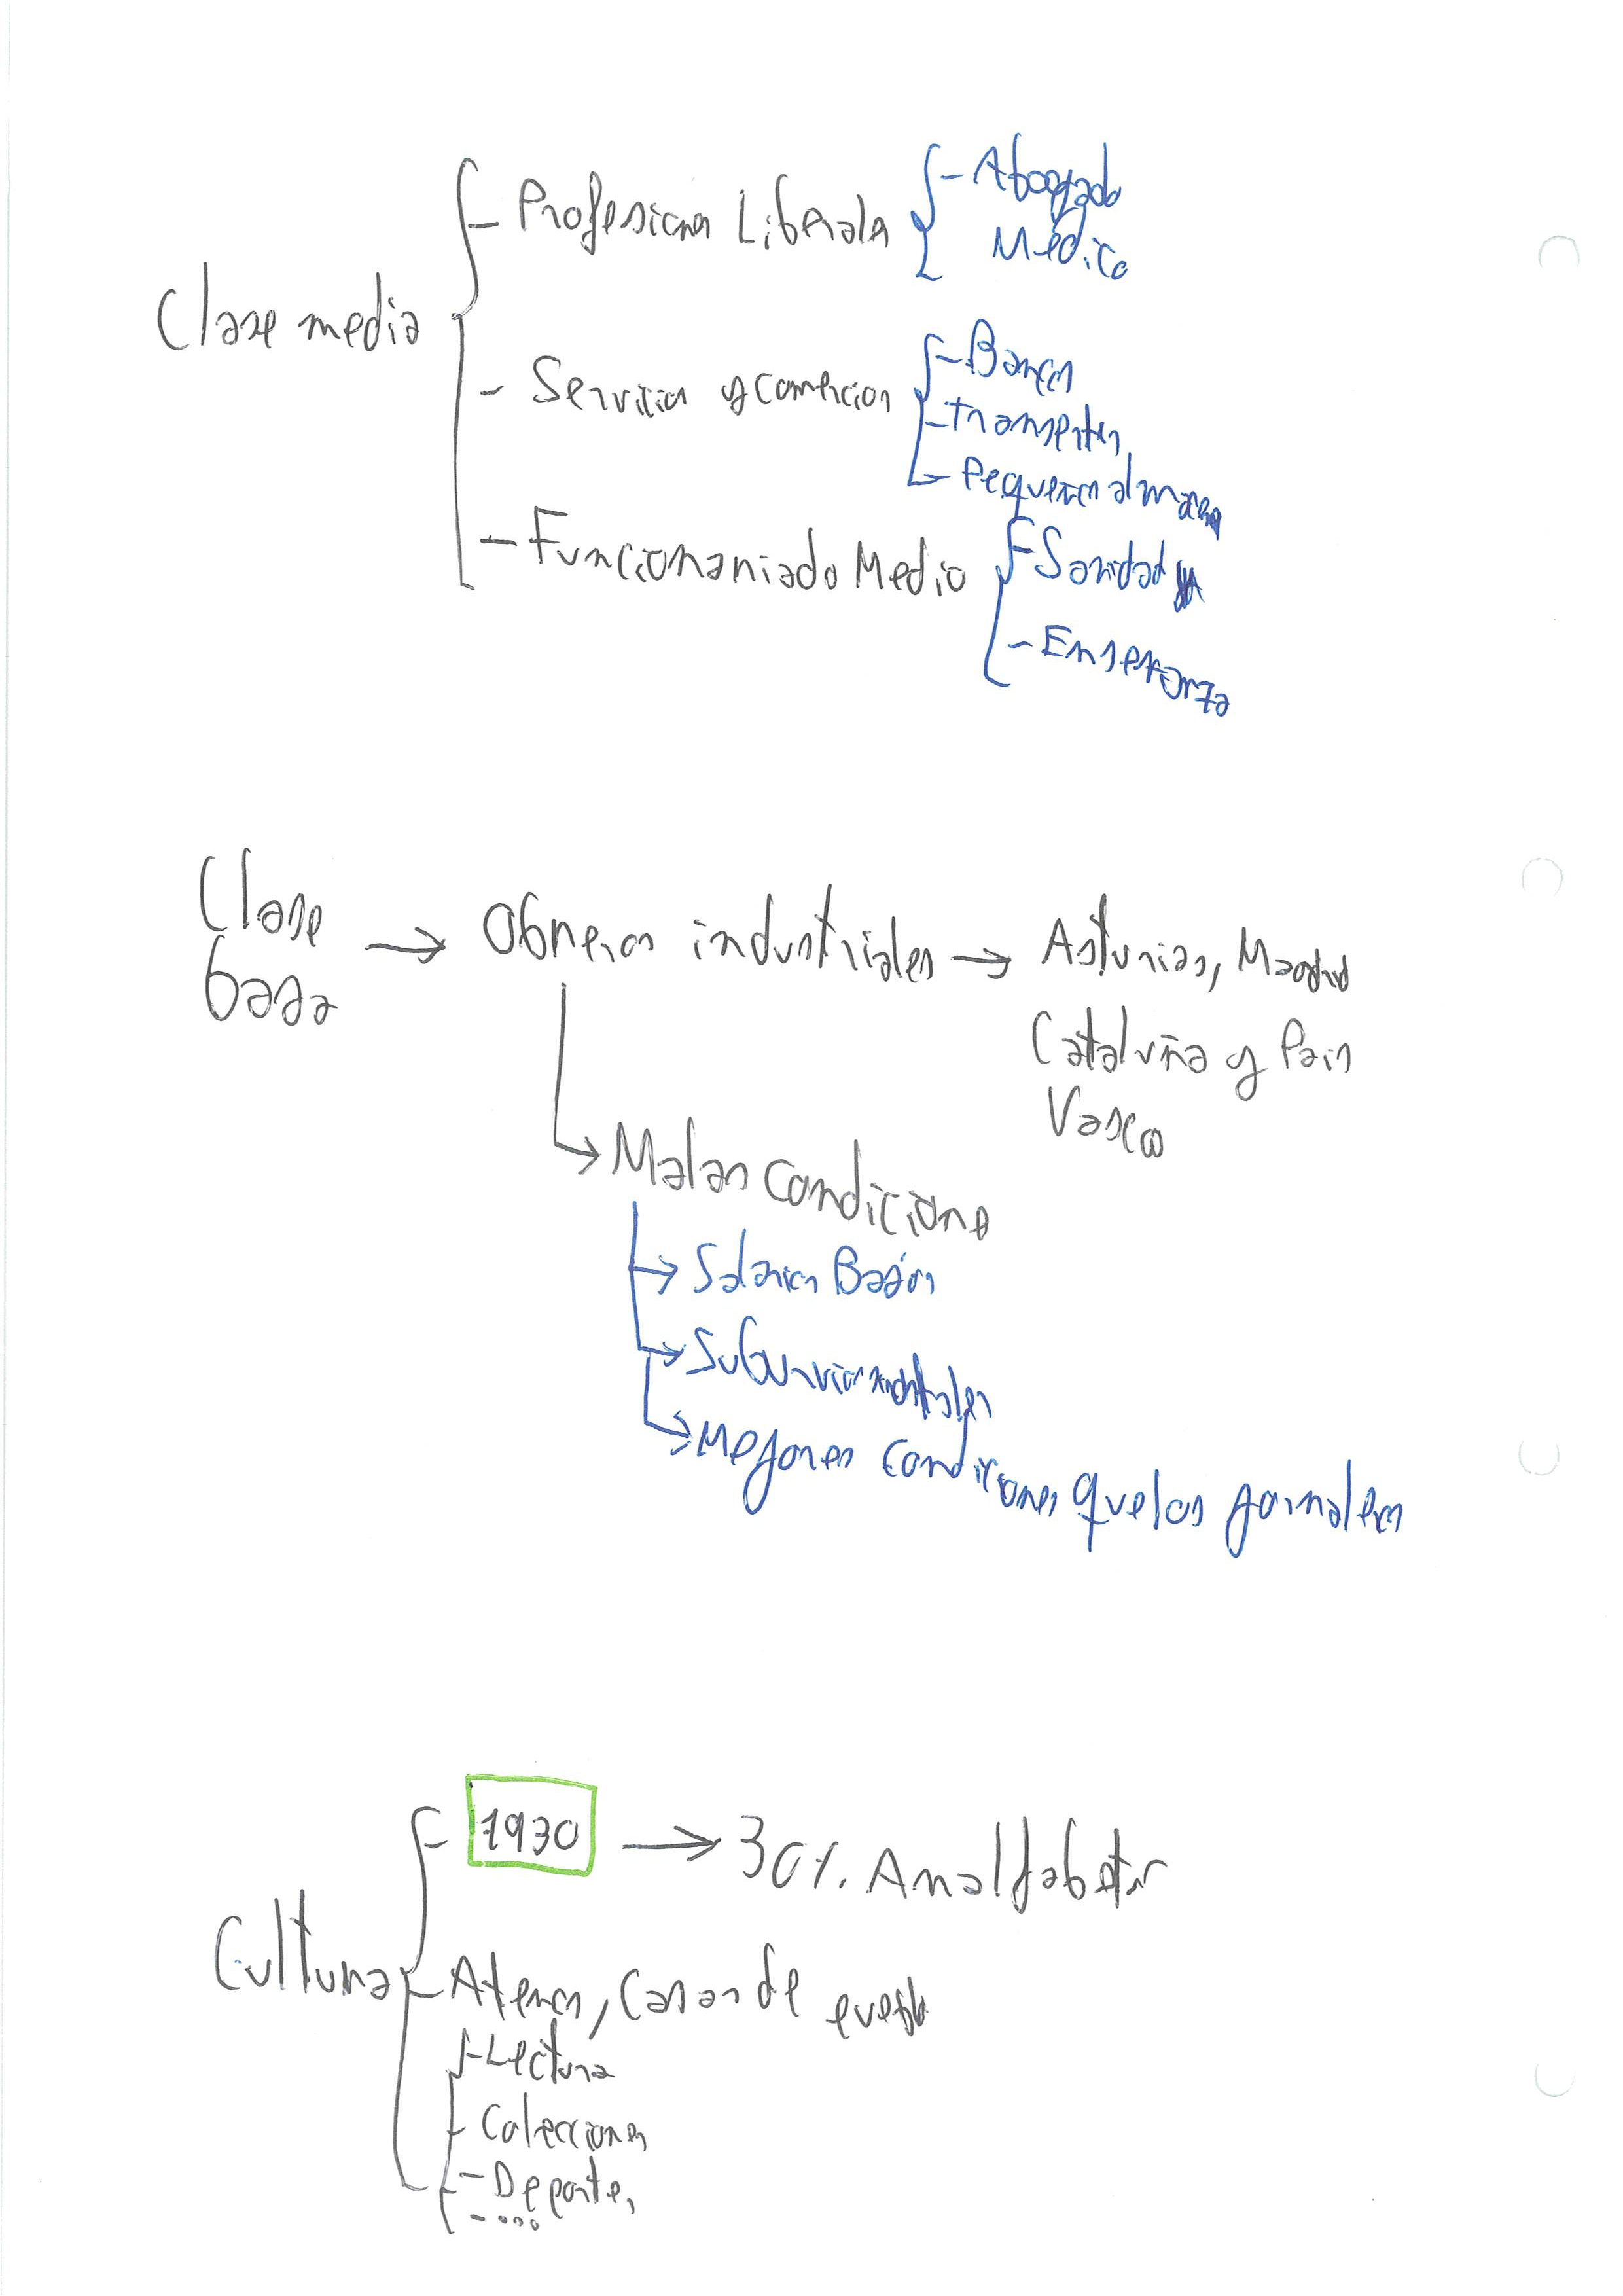 Clase media
- Profesiones Liberales
- Abogado
Médico
- Servicios y comercios
- Bancos
- transportes
- Pequeños almacenes
- Funcionariado Medio
- Sanidad
- Enseñanza
Clase
baja
→ Obreros industriales → Asturias, Madrid
Cataluña y Pais
Vasco
→ Malas Condiciones
→ Salarios Bajos
→ Suburvios
→ Mejores condiciones que los jornaleros
Cultura
- 1930 → 30%. Analfabetos
- Ateneos, Casas de pueblo
- Lectura
- Colecciones
- Deportes
- ....